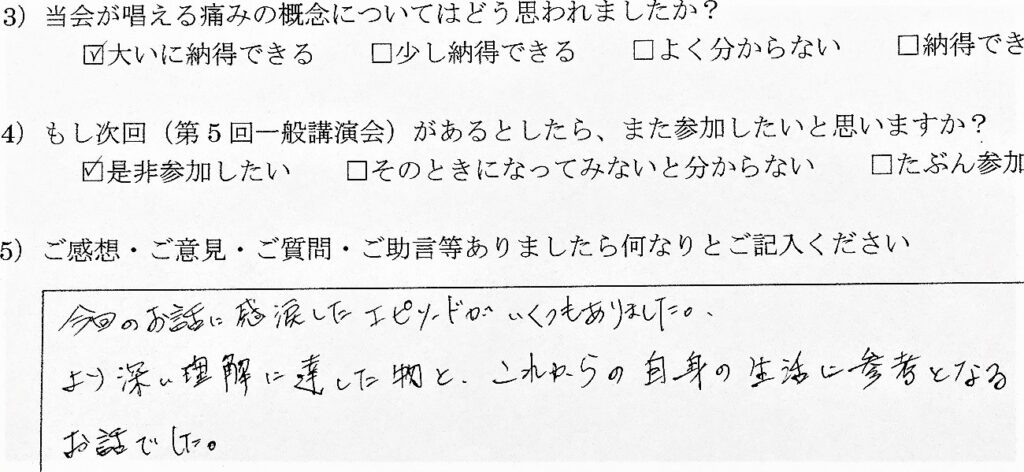 3）当会が唱える痛みの概念についてはどう思われましたか？
☑大いに納得できる　□少し納得できる　□よく分からない　□納得でき
4）もし次回（第５回一般講演会）があるとしたら、また参加したいと思いますか？
☑是非参加したい　□そのときになってみないと分からない　□たぶん参加
5）ご感想・ご意見・ご質問・ご助言等ありましたら何なりとご記入ください
今回のお話に感涙したエピソードがいくつもありました。
より深い理解に達した物と、これからの自身の生活に参考となる
お話でした。